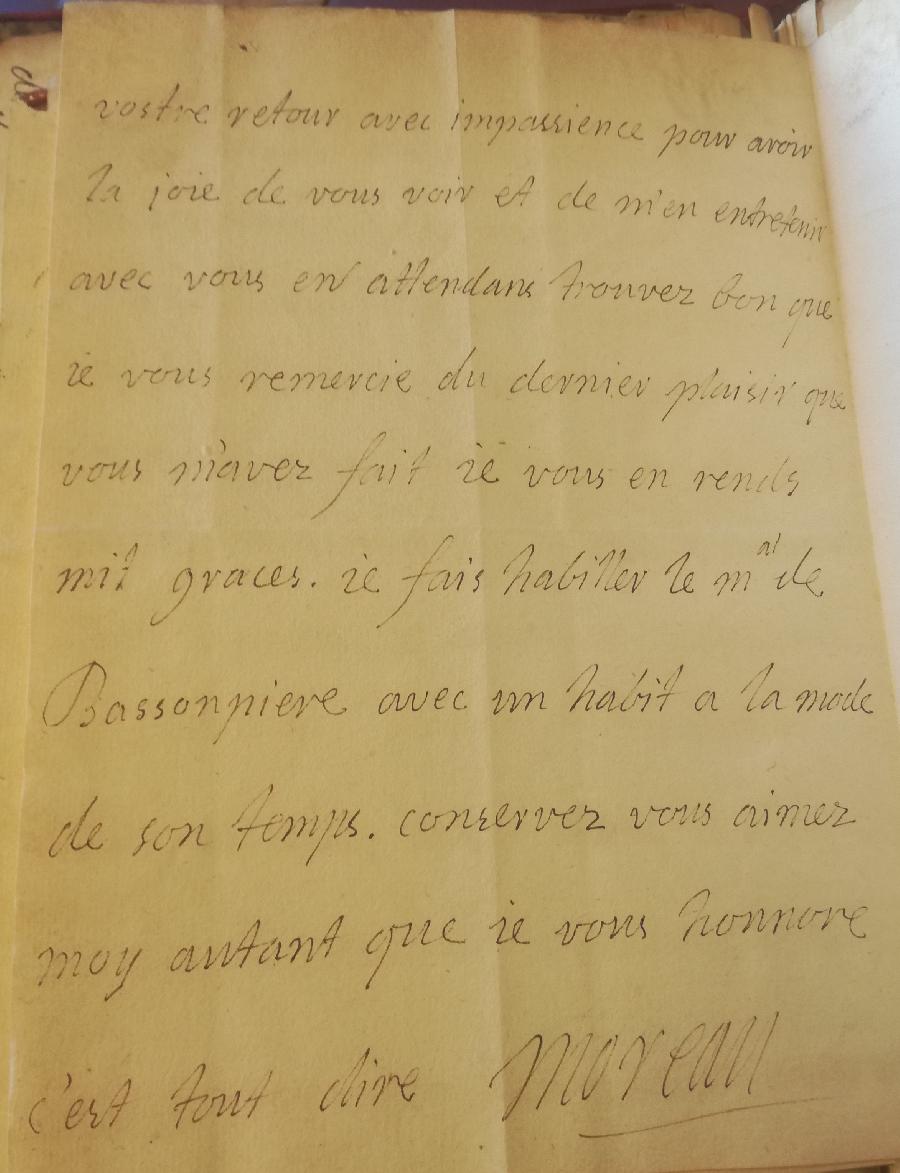 vostre retour avec impassience pour avoir
la joie de vous voir et de m'en entretenir
avec vous en attendans trouvez bon que
ie vous remercie du dernier plaisir que
vous m'avez fait ie vous en rends
mil graces. ie fais habiller le m^al de
Bassonpiere avec un habit a la mode
de son temps. conservez vous aimez
moy autant que ie vous honnore
c'est tout dire Moreau